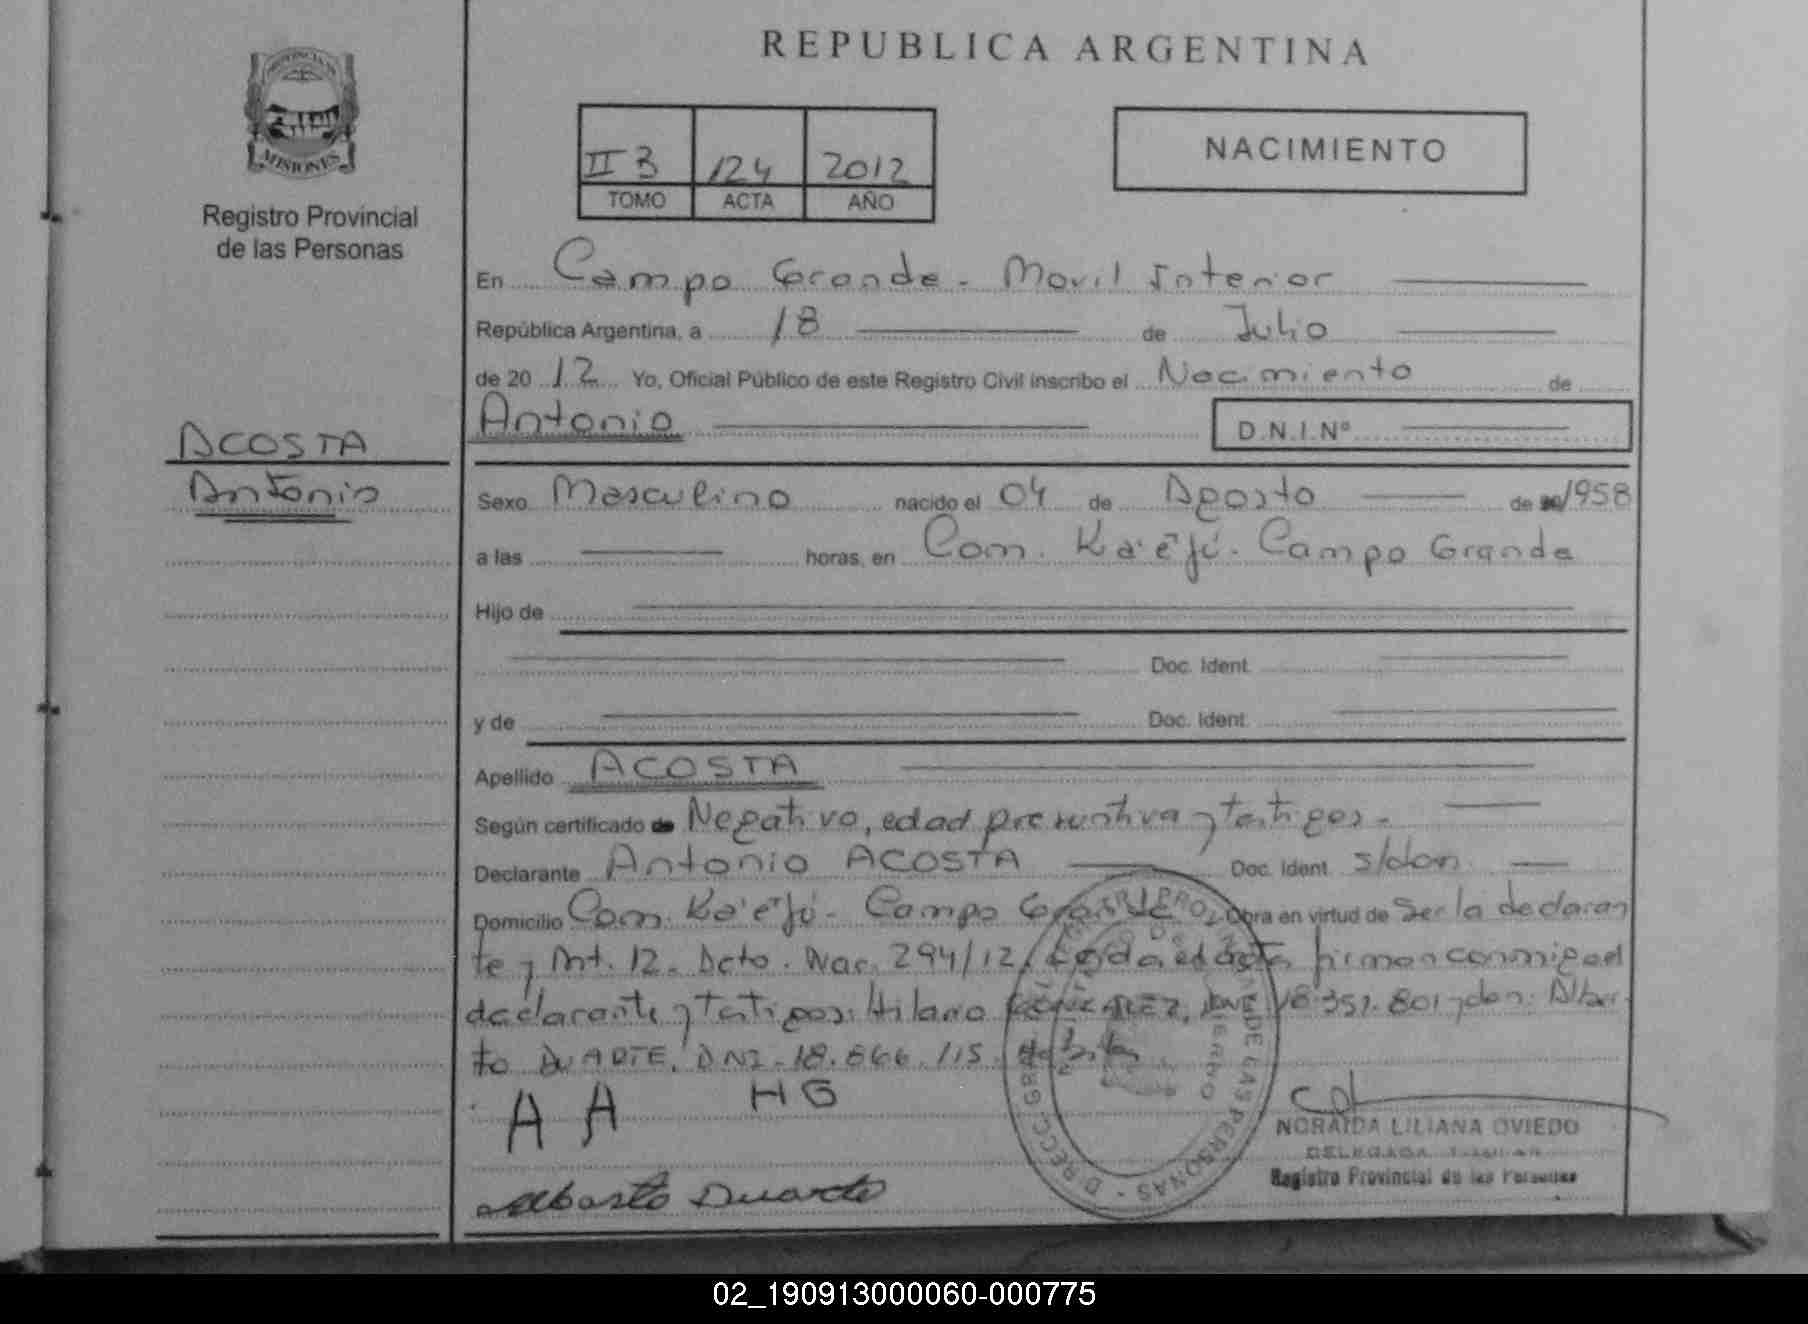 REPUBLICA ARGENTINA
PROVINCIA DE
MISIONES
Registro Provincial
de las Personas
II 3 124 2012
TOMO ACTA AÑO
NACIMIENTO
En Campo Grande - Movil Interior
República Argentina, a 18 de Julio
de 20 12 Yo, Oficial Público de este Registro Civil inscribo el Nacimiento de
Antonio D.N.I.Nº
ACOSTA
Antonio
Sexo Masculino nacido el 04 de Agosto de 1958
a las horas, en Com. Ka'ẽ'jú. Campo Grande
Hijo de
Doc. Ident.
y de Doc. Ident.
Apellido ACOSTA
Según certificado de Negativo, edad presuntiva y testigos.
Declarante Antonio ACOSTA Doc. Ident. s/don.
Domicilio Com. Ka'ẽ'jú - Campo Grande Obra en virtud de Ser la declaran
te y Art. 12. Dcto. Nac. 294/12. Leida el acta firman conmigo el
declarante y testigos: Hilario GONZALEZ, DNI 18.351.801 y don: Alber
to DUARTE, DNI. 18.866.115.
A A HG
Alberto Duarte
NORAIDA LILIANA OVIEDO
DELEGADA
Registro Provincial de las Personas
02_190913000060-000775